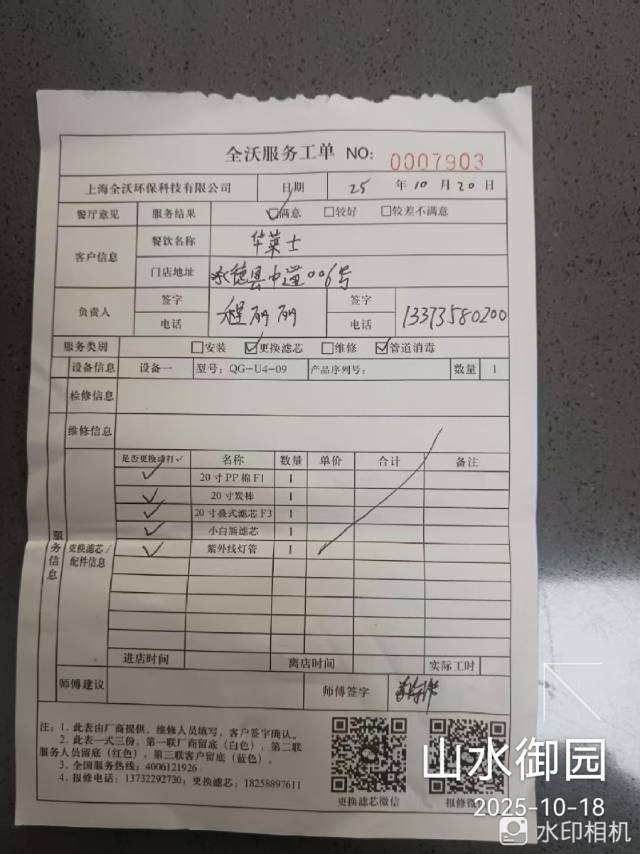 全沃服务工单 NO: 0007903
上海全沃环保科技有限公司 日期 25 年 10 月 20 日
餐厅意见 服务结果 ☑满意 □较好 □较差不满意
客户信息 餐饮名称 华莱士
门店地址 承德县中蓮006号
负责人 签字 程丽丽 签字
电话 电话 13373580200
服务类别 □安装 ☑更换滤芯 □维修 ☑管道消毒
设备信息 设备一 型号: QG-U4-09 产品序列号: 数量 1
检修信息
维修信息
服务信息 更换滤芯/配件信息
是否更换请打✓ 名称 数量 单价 合计 备注
✓ 20寸PP棉F1 1
✓ 20寸炭棒 1
✓ 20寸叠式滤芯F3 1
✓ 小白瓶滤芯 1
✓ 紫外线灯管 1
进店时间 离店时间 实际工时
师傅建议 师傅签字
注: 1. 此表由厂商提供, 维修人员填写, 客户签字确认。
2. 此表一式三份, 第一联厂商留底(白色), 第二联
服务人员留底(红色), 第三联客户留底(蓝色)。
3. 全国服务热线: 4006121926
4. 报修电话: 13732292730; 更换滤芯: 18258897611
更换滤芯微信 报修微信
山水御园
2025-10-18
水印相机